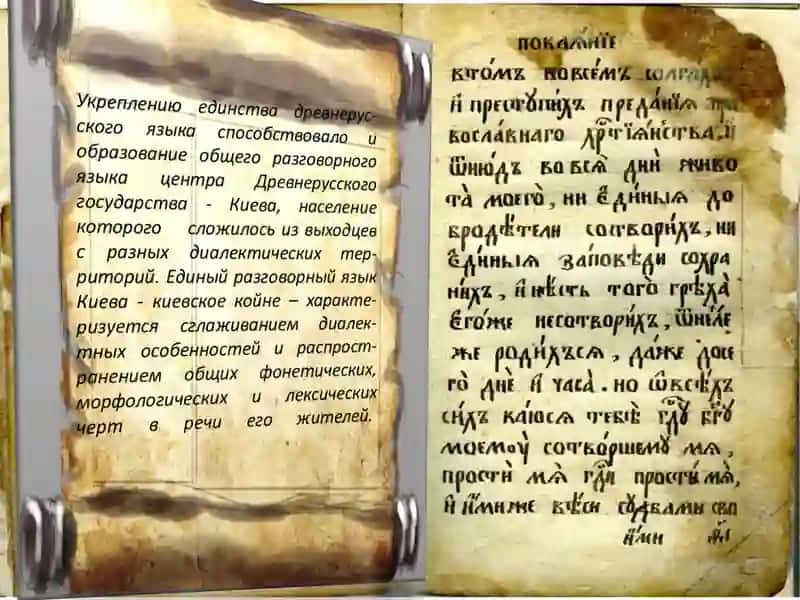 Укреплению единства древнерус-
ского языка способствовало и
образование общего разговорного
языка центра Древнерусского
государства - Киева, население
которого сложилось из выходцев
с разных диалектических тер-
риторий. Единый разговорный язык
Киева - киевское койне – характе-
ризуется сглаживанием диалек-
тных особенностей и распрост-
ранением общих фонетических,
морфологических и лексических
черт в речи его жителей.
покаѧ́нїе
втомъ всемъ солгахъ
и҆ престꙋпи́хъ преда́нїѧ
вославнаго хрⷭ҇тїѧ́нства
ѿню́дъ во всѧ̀ днѝ живо
та̀ моегѡ̀, ни є҆ди́ныѧ до
бродѣ́тели сотвори́хъ, ни
є҆ди́ныѧ за́повѣди сохра
ни́хъ, и҆ нѣ́сть того̀ грѣха̀
є҆го́же несотвори́хъ, ѿнеле
же роди́хъсѧ, да́же досе
го̀ днѐ и҆ часа̀. но ѡ҆ всѣ́хъ
си́хъ ка́юсѧ тебѣ̀ гдⷭ҇ꙋ бг҃ꙋ
моемꙋ̀ сотво́ршемꙋ мѧ̀,
простѝ мѧ̀ гдⷭ҇и простѝ мѧ̀,
и҆ и҆́миже вѣ́си сꙋдбами сво
и҆́ми